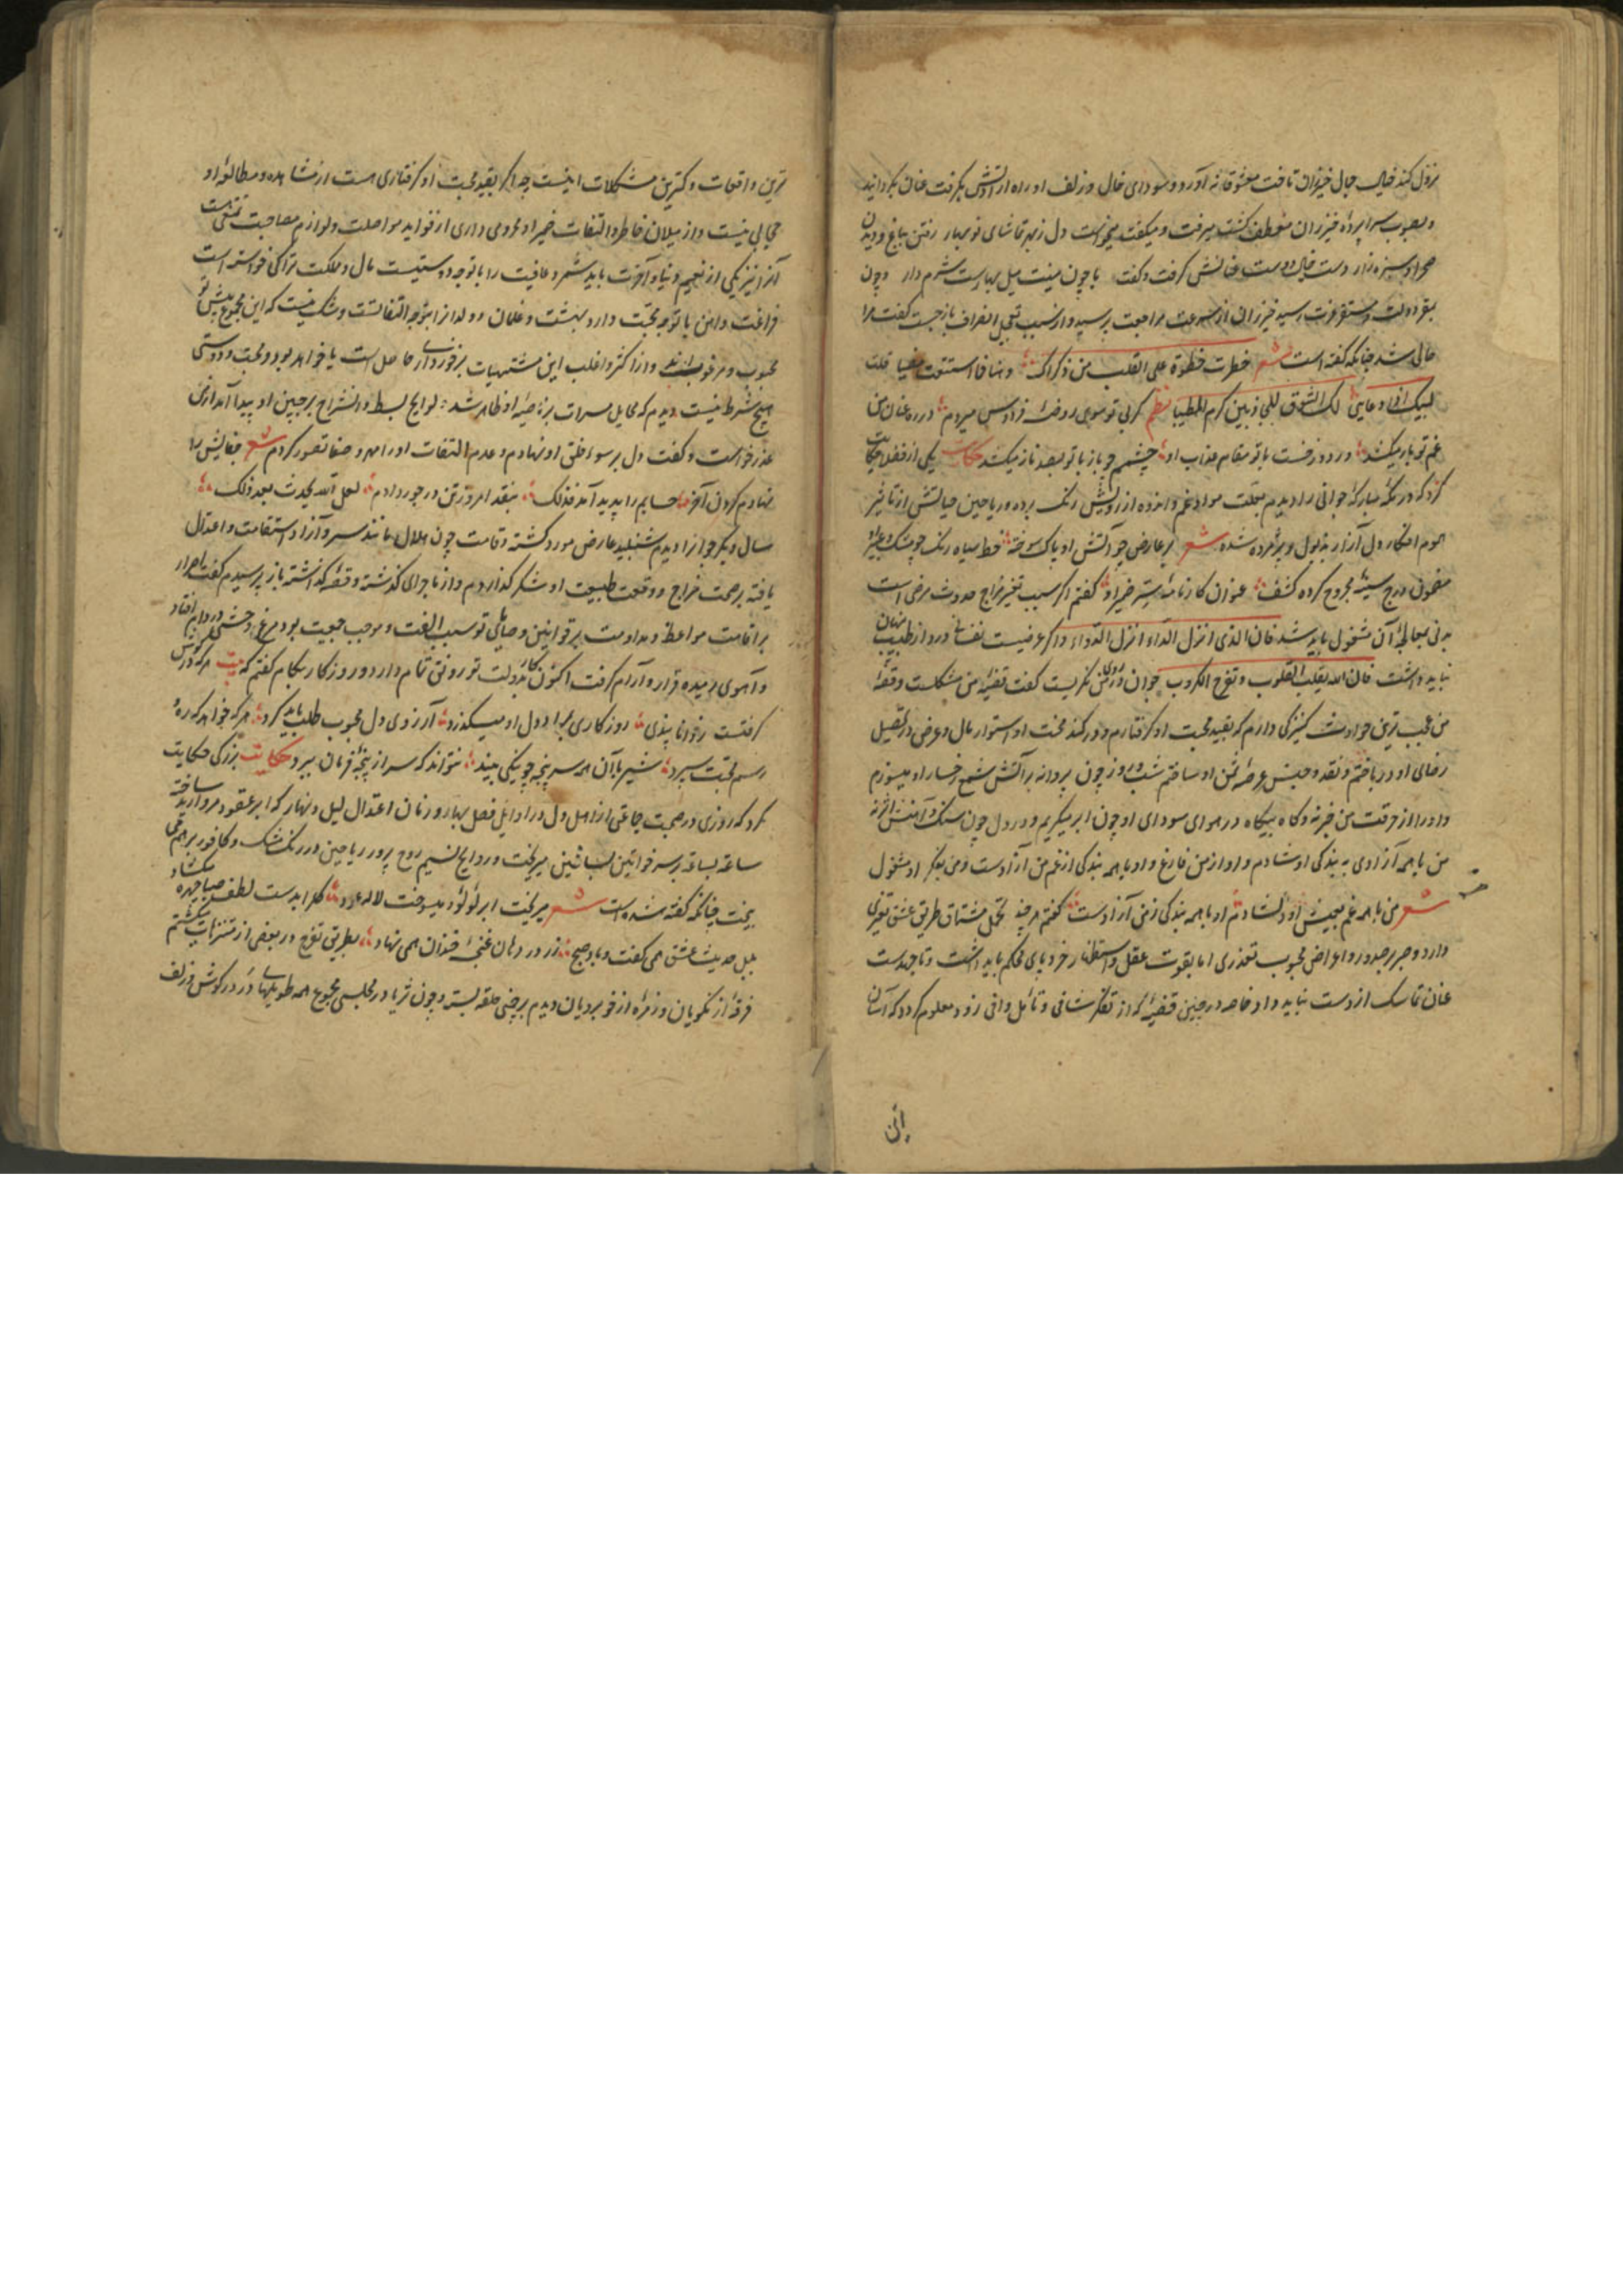 نزول کند خیال جمال خیزران تافت معشوقانه آورد و سودای خال و زلف او راه از آتش بگرفت عنان بگردانید
و بصوب سراپردهٔ خیزران منعطف کشت میرفت و میکفت میخواست دل زبهر تماشای نوبهار رفتن بباغ و دیدن
صحرا و سبزه زار دست خیال دوست عنانش کرفت و کفت با چون منیت میل بهارست شرم دار و چون
بمقر دولت و مستقر عزت رسید خیزران از سرعت مراجعت پرسید و از سبب تعجیل انصراف باز جست کفت مرا
حالی شد چنانکه کفته است شعر خطرت خطرة علی القلب من ذکراک وهنا فما استطعت مضیا قلت
لبیک اذ دعانی لک الشوق وللحادیین کرا المطیا نظم کر بی تو سوی روضهٔ فردوس میروم در ره عنان من
غم تو باز میکشد ور دوزخست با تو مقام عذاب او چشمم چو باز با تو بصد ناز میکشد حکایت یکی از فضلا حکایت
کرد که در مکهٔ مبارکه جوانی را دیدم بعلت مواد غم و انده از رویش رنک برده و ریاحین حیاتش از تاثیر
هموم افکار دل آزار بذبول و پژمرده شده شعر بر عارض چو آتش او پاک سوخته خط سیاه رنک چو مشک و عبیر او
مضمون درج سینهٔ مجروح کرده کشف عنوان کارنامهٔ ستر ضمیر او کفتم اکر سبب تغیر مزاج حدوث مرضی است
بدنی بمعالجهٔ آن مشغول باید شد فان الذی انزل الداء انزل الدواء و اکر عرضیست نفسانی درد از طبیب پنهان
نباید داشت فان الله یقلب القلوب و یفرج الکروب جوان در روی من نکریست کفت قضیهٔ من مشکلست و وقعهٔ
من عجیب ترین حوادث کنیزکی دارم که بقید محبت او کرفتارم و در کمند محنت او استوار مال و عرض در تحصیل
رضای او در باختم و نقد و جنس عرضهٔ تمن او ساختم شب و روز چون پروانه بر آتش شمع رخسار او میسوزم
و او را از حرقت من خبر نه و کاه بیکاه در هوای سودای او چون ابر میکریم و در دل چون سنک و آهنش اثر نه
من با همه آزادی به بندکی او شادم و او از من فارغ و او با همه بندکی از غم من آزادست و من بفکر او مشغول
شعر من با همه غم بعیش او دلشادم او با همه بندکی ز من آزادست کفتم هر چند تحمل مشتاق طریق عشق تعذری
دارد و صبر بر صدور و اعراض محبوب تعذری اما بقوت عقل و استظهار خرد پای محکم باید داشت و تا جهدست
عنان تماسک از دست نباید داد خاصه در چنین قضیهٔ که از تفکر شافی و تأمل وافی زود معلوم کردد که آسان
این
ترین واقعات و کمترین مشکلات اینست چه اکر بقید محبت او کرفتاری هست از مشاهده و مطالعهٔ او
حجابی نیست و از میلان خاطر و التفات ضمیر او محرومی داری از فواید مواصلت و لوازم مصاحبت تمتعی هست
آنرا نیز یکی از نعیم دنیا و آخرت باید شمرد عاقبت را با توجه دوستیست مال و ملکت ترا کی خواسته است
فراغت و امن با توجه محبت دارد بهشت و غلمان و ولدانرا بتو چه التفاتست و شک نیست که این مجموع پیش تو
محبوب و مرغوب اند و از اکثر و اغلب این مشتهیات برخورداری حاصل است یا خواهد بود و محبت و دوستی
هیچ شرط نیست دیدم که مخایل مسرات بر ناصیهٔ او ظاهر شد لوایح بسط و انشراح بر جبین او پیدا آمد از من
عذر خواست و کفت دل بر سوء خلق او نهادم و عدم التفات او را مهر و صفا تصور کردم شعر جفایش را
نهادم کردن آخر حسابم را پدید آمد فذلک بنقد امروز تن در جور دادم لعل الله یحدث بعد ذلک
سال دیکر جوانرا دیدم شنبلید عارض مورد کشته و قامت چون هلال مانند سرو آزاد استقامت و اعتدال
یافته بر صحت مزاج و وقعت طبیعت او شکر کذاردم و از ماجرای کذشته و قصهٔ کذاشته باز پرسیدم کفت اصرار
بر اقامت مواعظ و مداومت بر قوانین وصایای تو سبب الفت و موجب جمعیت بود مرغ وحشی در دام افتاد
و آهوی رمیده قرار و آرام کرفت اکنون کار بدولت تو رونق تمام دارد و روزکار بکام کفتم که بیت هر که در دلش
کرفتست ز خوبان پندی روزکاری بمراد دل او میکذرد آرزوی دل محبوب طلب باید کرد هر که خواهد که رهٔ
رسم محبت سپرد شیر با آن همه سرپنجه چو نیکی بیند نتواند که سر از پنجهٔ فرمان ببرد حکایت بزرکی حکایت
کرد که روزی در صحبت جماعتی از اهل دل در اوایل فصل بهار و زمان اعتدال لیل و نهار که ابر عقود مروارید ساخته
ساعة بساعة بر سر خواتین بساتین میریخت و روایح نسیم روح پرور ریاحین در رنک مشک و کافور بر هم می
بیخت چنانکه کفته شده است شعر میریخت ابر لؤلؤ میسوخت لاله عود کلرا بدست لطف صبا چهره میکشاد
بلبل حدیث عشق همی کفت و باد صبح زر در دهان غنچهٔ خندان همی نهاد بطریق تفرج در بعضی از متنزهات میکشتم
فرقهٔ از نکویان و زمرهٔ از خوبرویان دیدم بر چمنی حلقه بسته و چون ثریا در مجلسی مجموع همه طویلهای در در کوش و زلف